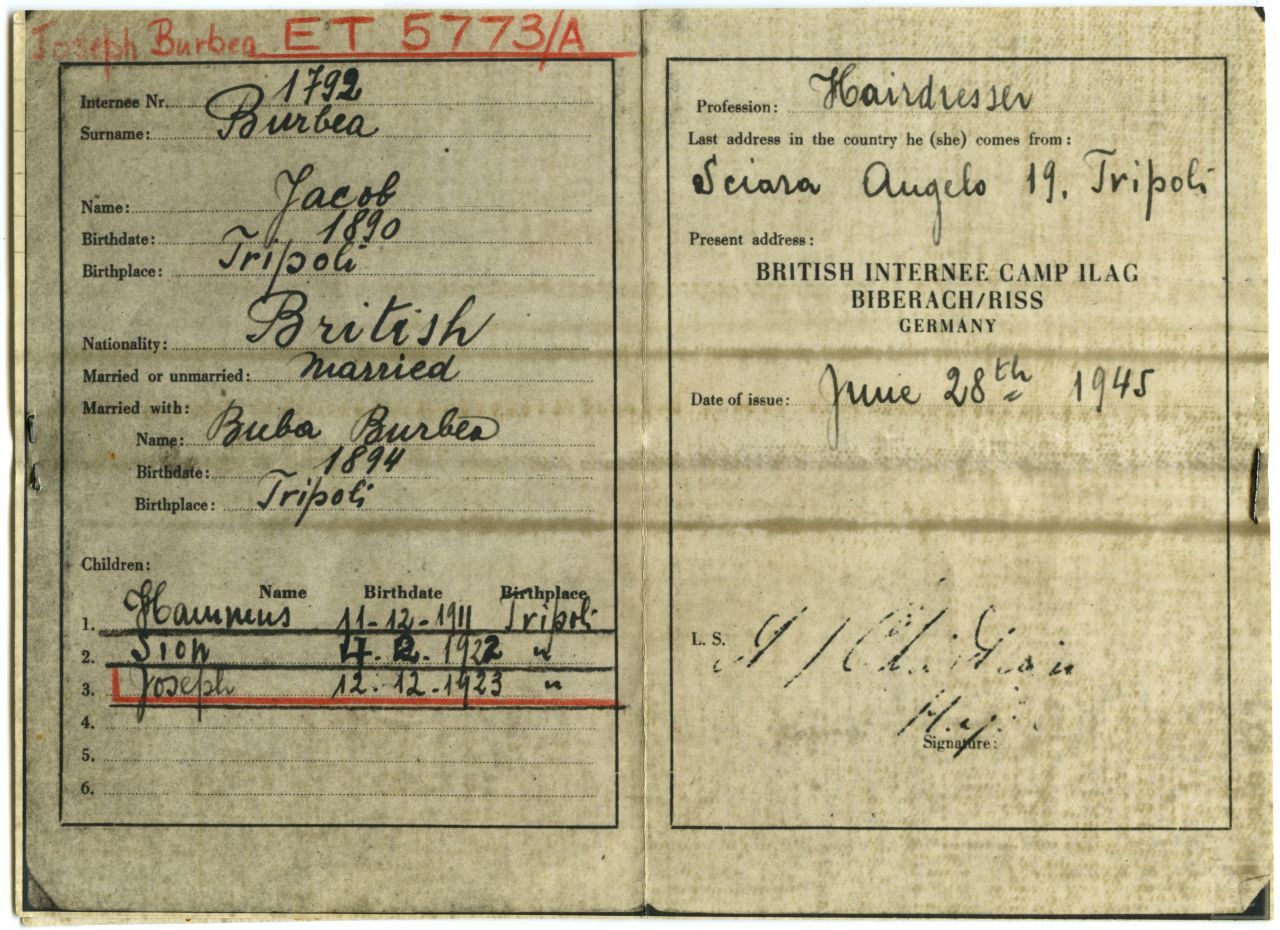 Joseph Burbea ET 5773/A
Internee Nr. 1792
Surname: Burbea
Name: Jacob
Birthdate: 1890
Birthplace: Tripoli
Nationality: British
Married or unmarried: married
Married with:
Name: Buba Burbea
Birthdate: 1894
Birthplace: Tripoli
Children:
Name Birthdate Birthplace
1. Hammus 11-12-1911 Tripoli
2. Sion 1922 "
3. Joseph 12-12-1923 "
4.
5.
6.
Profession: Hairdresser
Last address in the country he (she) comes from:
Sciara Angelo 19. Tripoli
Present address:
BRITISH INTERNEE CAMP ILAG
BIBERACH/RISS
GERMANY
Date of issue: June 28th 1945
L. S.
Signature: